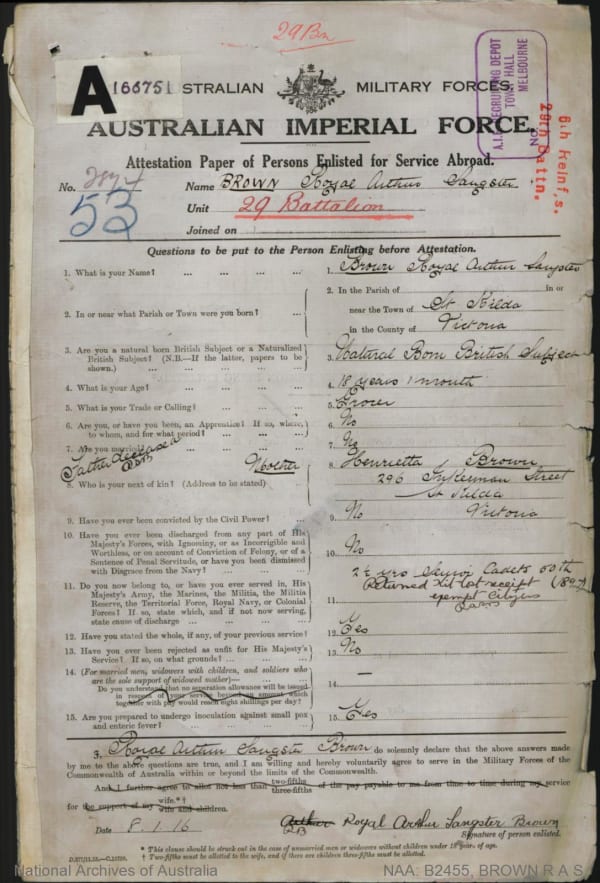 29 Bn
A 166751 STRALIAN MILITARY FORCES.
AUSTRALIAN IMPERIAL FORCE.
A.I.F. RECRUITING DEPOT
TOWN HALL
MELBOURNE
NO.
6th Reinf,s.
29th Battn.
Attestation Paper of Persons Enlisted for Service Abroad.
No.
53
Name BROWN Royal Arthur Sangster
Unit 29 Battalion
Joined on
Questions to be put to the Person Enlisting before Attestation.
1. What is your Name? ... ... ... ...
1. Brown Royal Arthur Sangster
2. In or near what Parish or Town were you born? ...
2. In the Parish of in or
near the Town of St Kilda
in the County of Victoria
3. Are you a natural born British Subject or a Naturalized
British Subject? (N.B.—If the latter, papers to be
shown.) ... ... ... ...
3. Natural Born British Subject
4. What is your Age? ... ... ... ...
4. 18 years 1 month
5. What is your Trade or Calling? ... ... ...
5. Grocer
6. Are you, or have you been, an Apprentice? If so, where,
to whom, and for what period? ... ... ...
6. No
7. Are you married? ... ... ...
7. No
Father deceased
RB
Mother
8. Who is your next of kin? (Address to be stated)
8. Henrietta Brown
296 Inkerman Street
St Kilda
Victoria
9. Have you ever been convicted by the Civil Power? ...
9. No
10. Have you ever been discharged from any part of His
Majesty's Forces, with Ignominy, or as Incorrigible and
Worthless, or on account of Conviction of Felony, or of a
Sentence of Penal Servitude, or have you been dismissed
with Disgrace from the Navy? ... ... ...
10. No
11. Do you now belong to, or have you ever served in, His
Majesty's Army, the Marines, the Militia, the Militia
Reserve, the Territorial Force, Royal Navy, or Colonial
Forces? If so, state which, and if not now serving,
state cause of discharge ... ... ...
11. 2½ yrs Senior Cadets 50th
Returned kit got receipt
exempt Citizens
12. Have you stated the whole, if any, of your previous service?
12. Yes
13. Have you ever been rejected as unfit for His Majesty's
Service? If so, on what grounds? ... ...
13. No
14. (For married men, widowers with children, and soldiers who
are the sole support of widowed mother)—
Do you understand that no separation allowance will be issued
in respect of your service beyond an amount which
together with pay would reach eight shillings per day?
14. —
15. Are you prepared to undergo inoculation against small pox
and enteric fever? ... ... ... ...
15. Yes
I, Royal Arthur Sangster Brown do solemnly declare that the above answers made
by me to the above questions are true, and I am willing and hereby voluntarily agree to serve in the Military Forces of the
Commonwealth of Australia within or beyond the limits of the Commonwealth.
And I further agree to allot not less than two-fifths three-fifths of the pay payable to me from time to time during my service
for the support of my wife.*† wife and children.
Date 8.1.16
Arthur Royal Arthur Sangster Brown
RB
Signature of person enlisted.
* This clause should be struck out in the case of unmarried men or widowers without children under 18 years of age.
† Two-fifths must be allotted to the wife, and if there are children three-fifths must be allotted.
National Archives of Australia
NAA: B2455, BROWN R A S